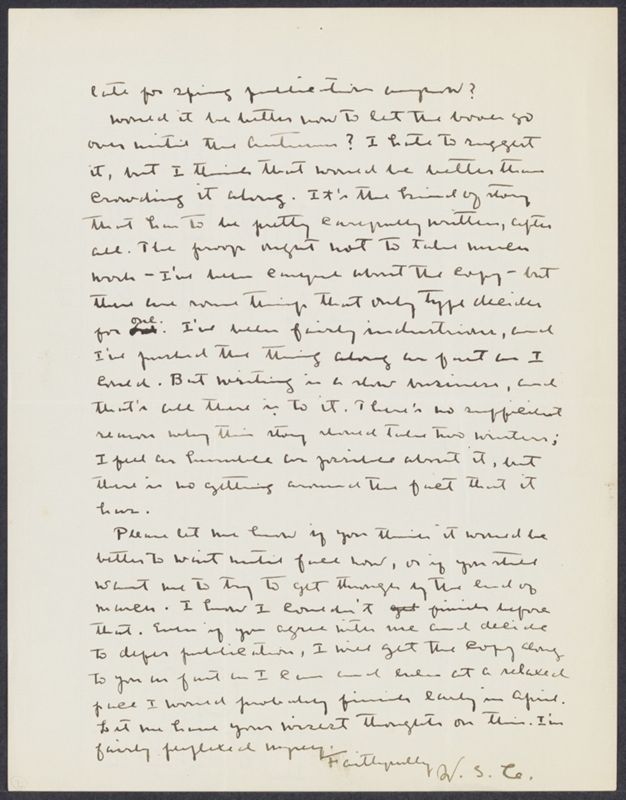 late for spring publication anyhow?
Would it be better now to let the book go
over until the autumn? I hate to suggest
it, but I think that would be better than
crowding it along. It's the kind of story
that has to be pretty carefully written, after
all. The proofs ought not to take much
work - I've been careful about the copy - but
there are some things that only type decides
for one. I've been fairly industrious, and
I've pushed the thing along as fast as I
could. But writing is a slow business, and
that's all there is to it. There's no sufficient
reason why this story should take two winters;
I feel as humble as possible about it, but
there is no getting around the fact that it
has.
Please let me know if you think it would be
better to wait until fall now, or if you still
want me to try to get through by the end of
March. I know I couldn't get finish before
that. Even if you agree with me and decide
to defer publication, I will get the copy along
to you as fast as I can and even at a relaxed
pace I would probably finish early in April.
Let me have your wisest thoughts on this. I'm
fairly perplexed myself.
Faithfully W. S. C.